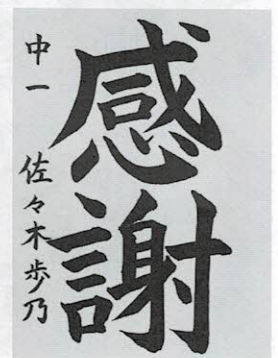 感謝
中一 佐々木歩乃